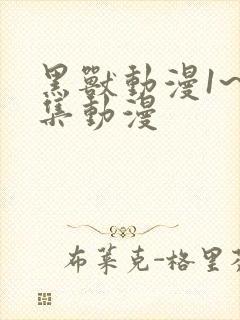 黑獸動漫1~
集動漫
布萊克-格里芬